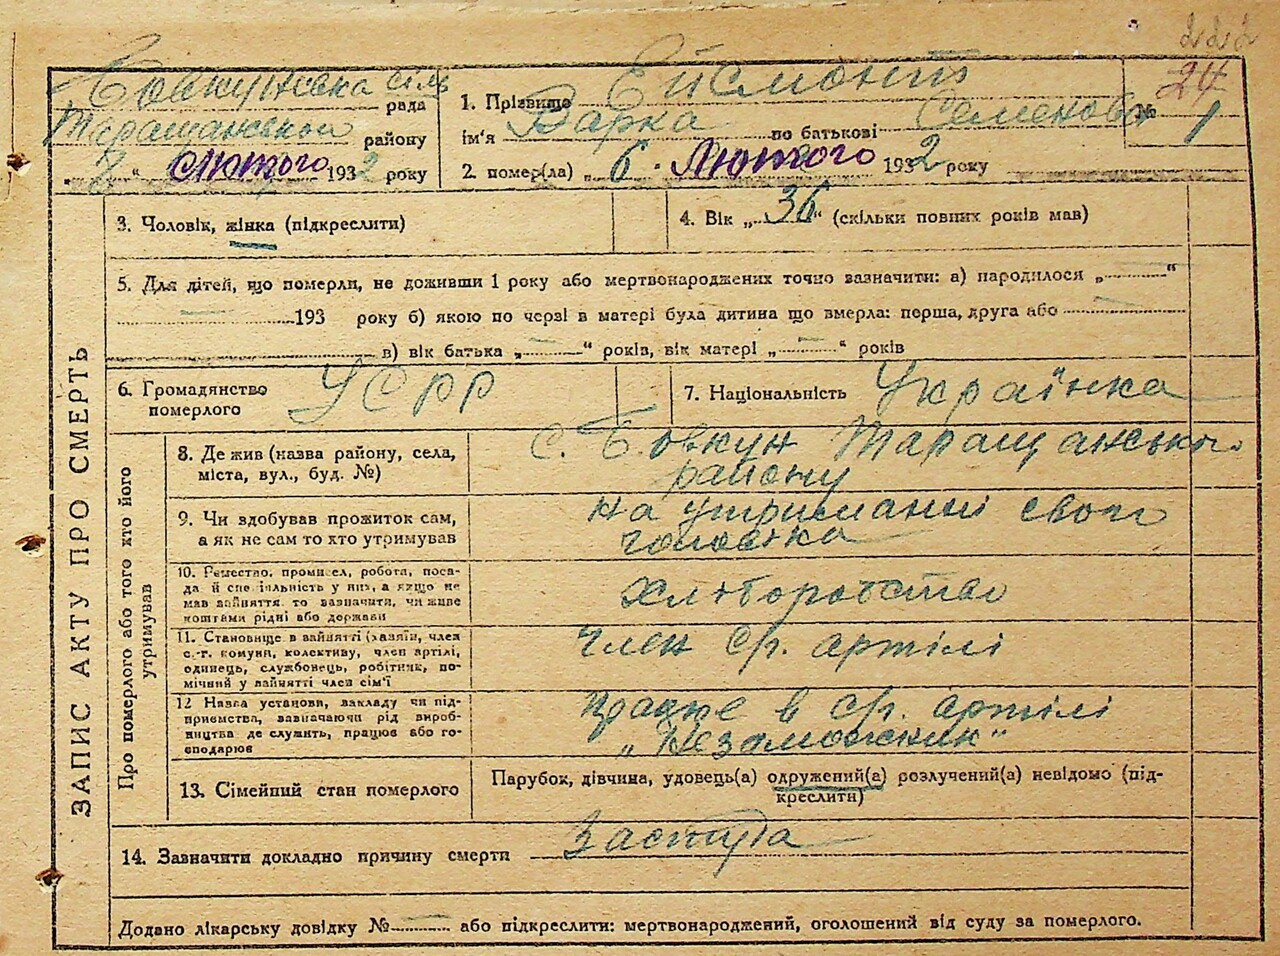 222
24
Бовкунівка сіль рада
Таращанської району
„ 7 “ Лютого 1932 року
1. Прізвище Ейсмонт
ім'я Варка по батькові Семенова
№ 1
2. помер(ла) „ 6 “ Лютого 1932 року
ЗАПИС АКТУ ПРО СМЕРТЬ
3. Чоловік, жінка (підкреслити)
4. Вік „ 36 “ (скільки повних років мав)
5. Для дітей, що померли, не доживши 1 року або мертвонароджених точно зазначити: а) народилося „ — “
— 193 року б) якою по черзі в матері була дитина що вмерла: перша, друга або —
в) вік батька „ — “ років, вік матері „ — “ років
6. Громадянство померлого УСРР
7. Національність Українка
Про померлого або того хто його утримував
8. Де жив (назва району, села,
міста, вул., буд. №)
с. Бовкун Таращанського
району
9. Чи здобував прожиток сам,
а як не сам то хто утримував
на утриманні свого
чоловіка
10. Ремество, промисел, робота, поса-
да й спеціяльність у них, а якщо не
мав зайняття то зазначити, чи живе
коштами рідні або держави
Хлиборобство
11. Становище в зайнятті (хазяїн, член
с.-г. комуни, колективу, член артілі,
одинець, службовець, робітник, по-
мічний у зайнятті член сім'ї
член ср. артілі
12 Назва установи, закладу чи під-
приємства, зазначаючи рід вироб-
ництва де служить, працює або го-
сподарює
в ср. артілі
„Незаможник“
13. Сімейний стан померлого
Парубок, дівчина, удовець(а) одружений(а) розлучений(а) невідомо (під-
креслити)
14. Зазначити докладно причину смерти Застуда
Додано лікарську довідку № — або підкреслити: мертвонароджений, оголошений від суду за померлого.